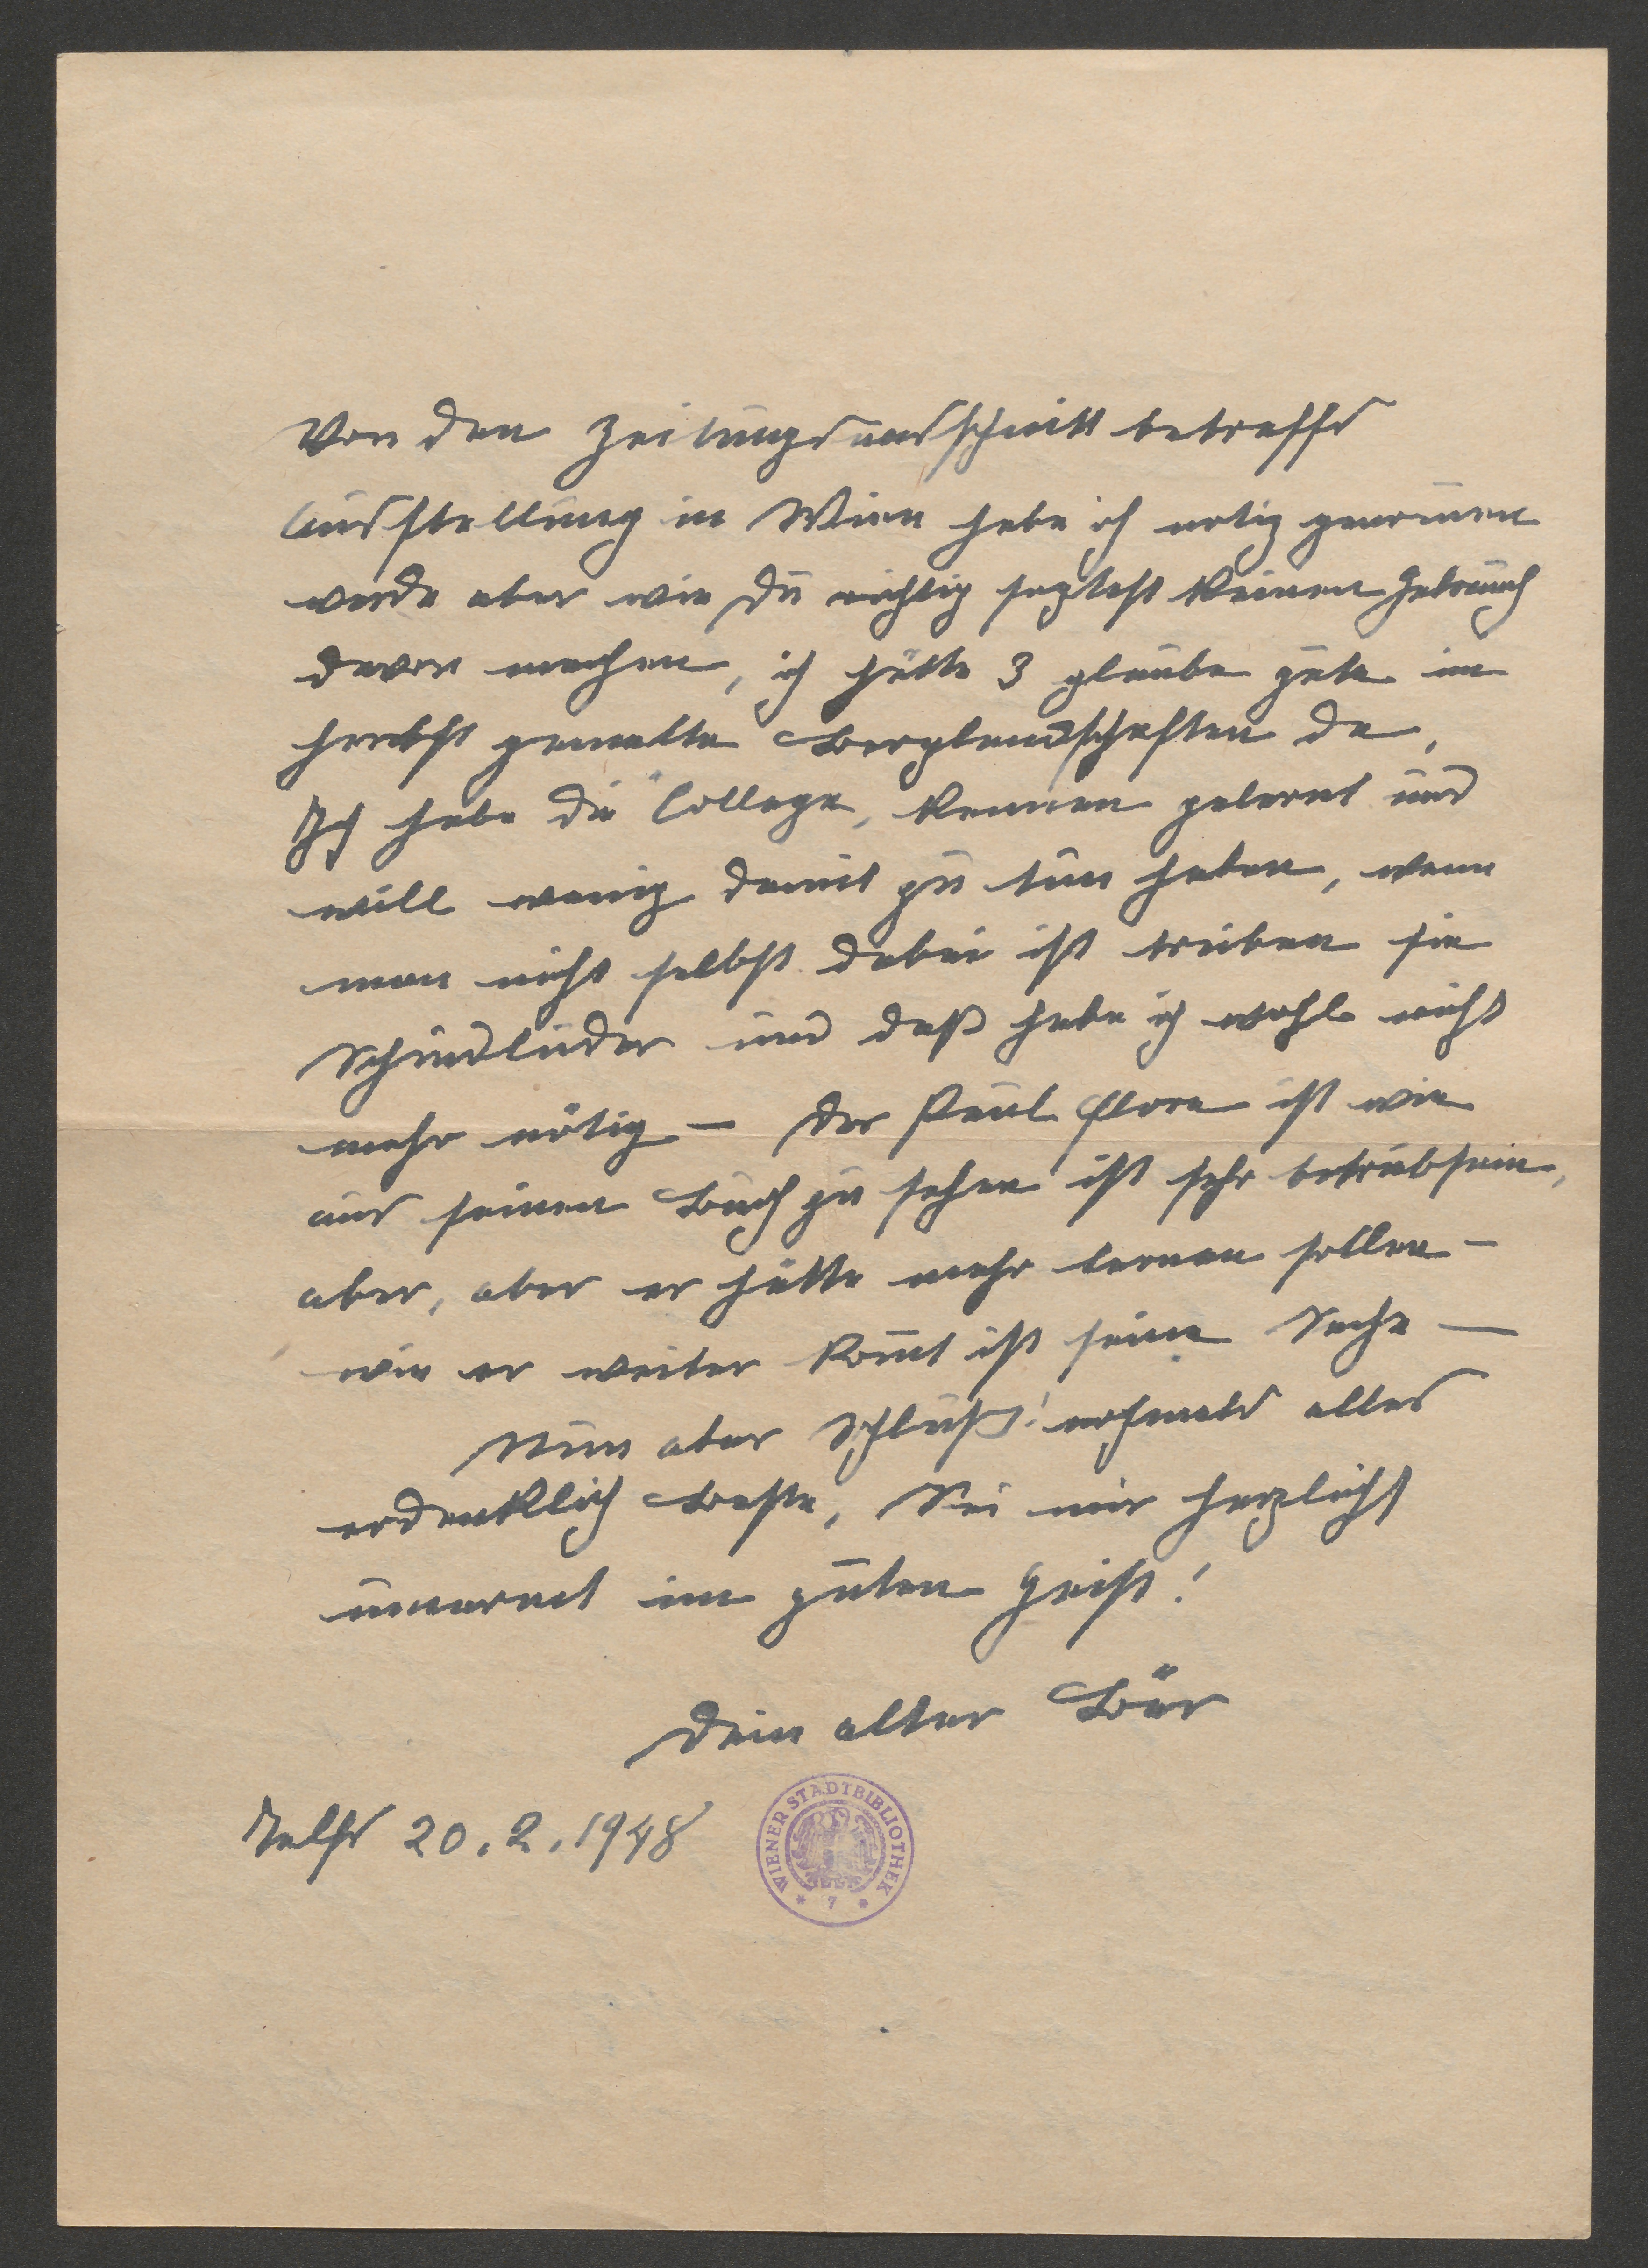 Von den Zeitungsausschnitt betreffs
Ausstellung in Wien habe ich notiz genom̅en
werde aber wie Du richtig sagtest keinen Gebrauch
davon machen, ich hätte 3 glaube gute im
Herbst gemalte Berglandschaften da,
Ich habe die Collega, kennen gelernt und
will wenig damit zu tun haben, wenn
man nicht selbst dabei ist treiben sie
Schindluder und daß habe ich wohl nicht
mehr nötig — Der Paul Flora ist wie
aus seinen Buch zu sehen ist sehr betriebsam,
aber, aber er hätte mehr lernen sollen —
wie er weiter kom̅t ist seine Sache —
Nun aber Schluß! nochmals alles
erdenklich Beste, Sei mir herzlichst
umarmt im guten Geist!
Dein alter Bär
Telfs 20.2.1948
WIENER STADTBIBLIOTHEK
* 7 *